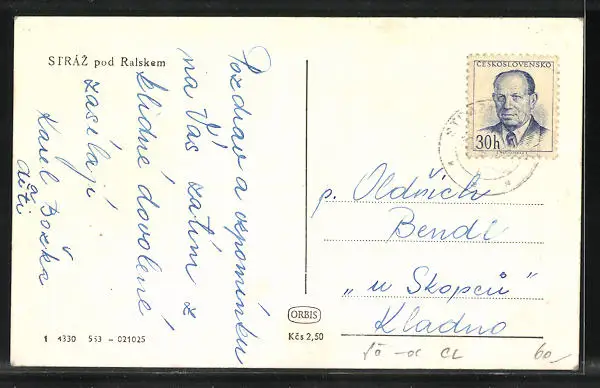 STRÁŽ pod Ralskem
Pozdrav a vzpomínku
na Vás zatím z
klidné dovolené
zasílají
Karel Božka
děti
ČESKOSLOVENSKO
30h
p. Oldřich
Bendl
„u Skopců"
Kladno
ORBIS
Kčs 2,50
1 4330 553 - 021025
60